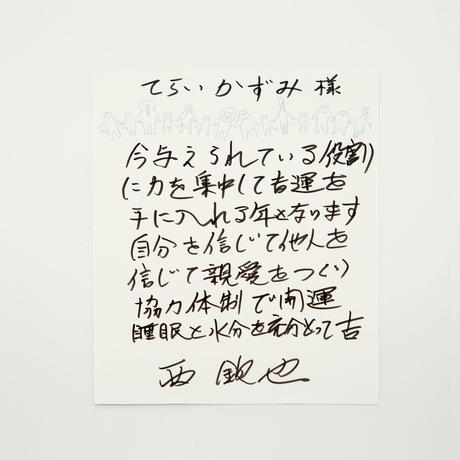 てらい かずみ 様
今与えられている役割
に力を集中して吉運を
手に入れる年となります
自分を信じて他人を
信じて親愛をつくり
協力体制で開運
睡眠と水分を充分とって吉
西 鋭也